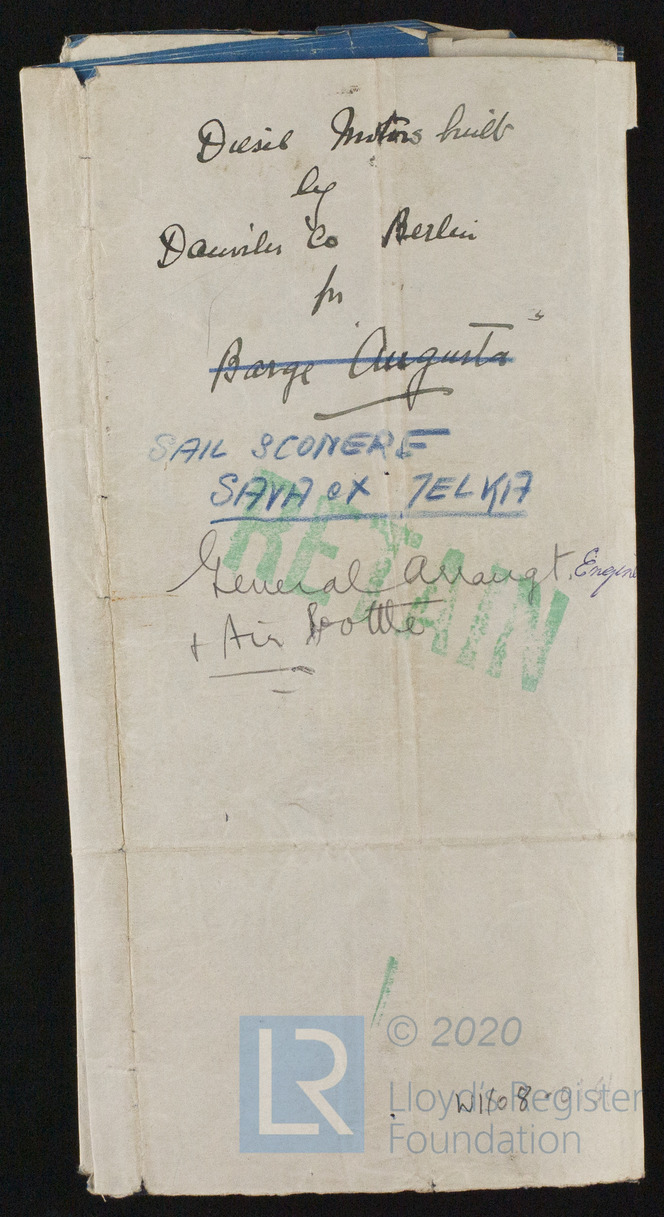 Diesel Motors built
by
Daimler Co Berlin
for
Barge Augusta
SAIL SCONERE
SAVA ex JELKA
RETAIN
General Arrangt. Engine
+ Air Bottle
LR
© 2020
Lloyd's Register
Foundation